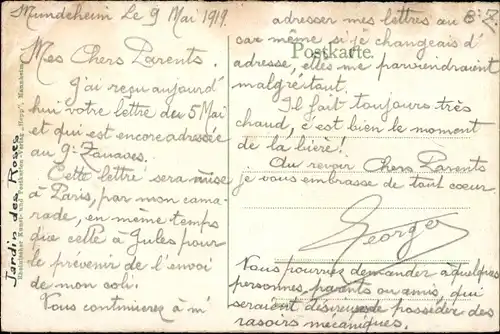 Mundenheim Le 9 Mai 1919.
Mes Chers Parents.
J'ai reçu aujourd'
hui votre lettre du 5 Mai
et qui est encore adressée
au 9e Zouaves.
Cette lettre sera mise
à Paris, par mon cama-
rade, en même temps
que celle à Jules pour
le prévenir de l'envoi
de mon coli.
Vous continuerez à m'
adresser mes lettres au 8e Z
car même si je changeais d'
adresse, elles me parviendraient
malgré tout.
Il fait toujours très
chaud, c'est bien le moment
de la bière!
Au revoir Chers Parents
je vous embrasse de tout coeur
Georges
Vous pourriez demander à quelques
personnes, parents ou amis, qui
seraient désireuses de posséder des
rasoirs mécaniques.
Postkarte
Jardin des Roses
Rheinischer Kunst- und Postkarten-Verlag "Hepp", Mannheim